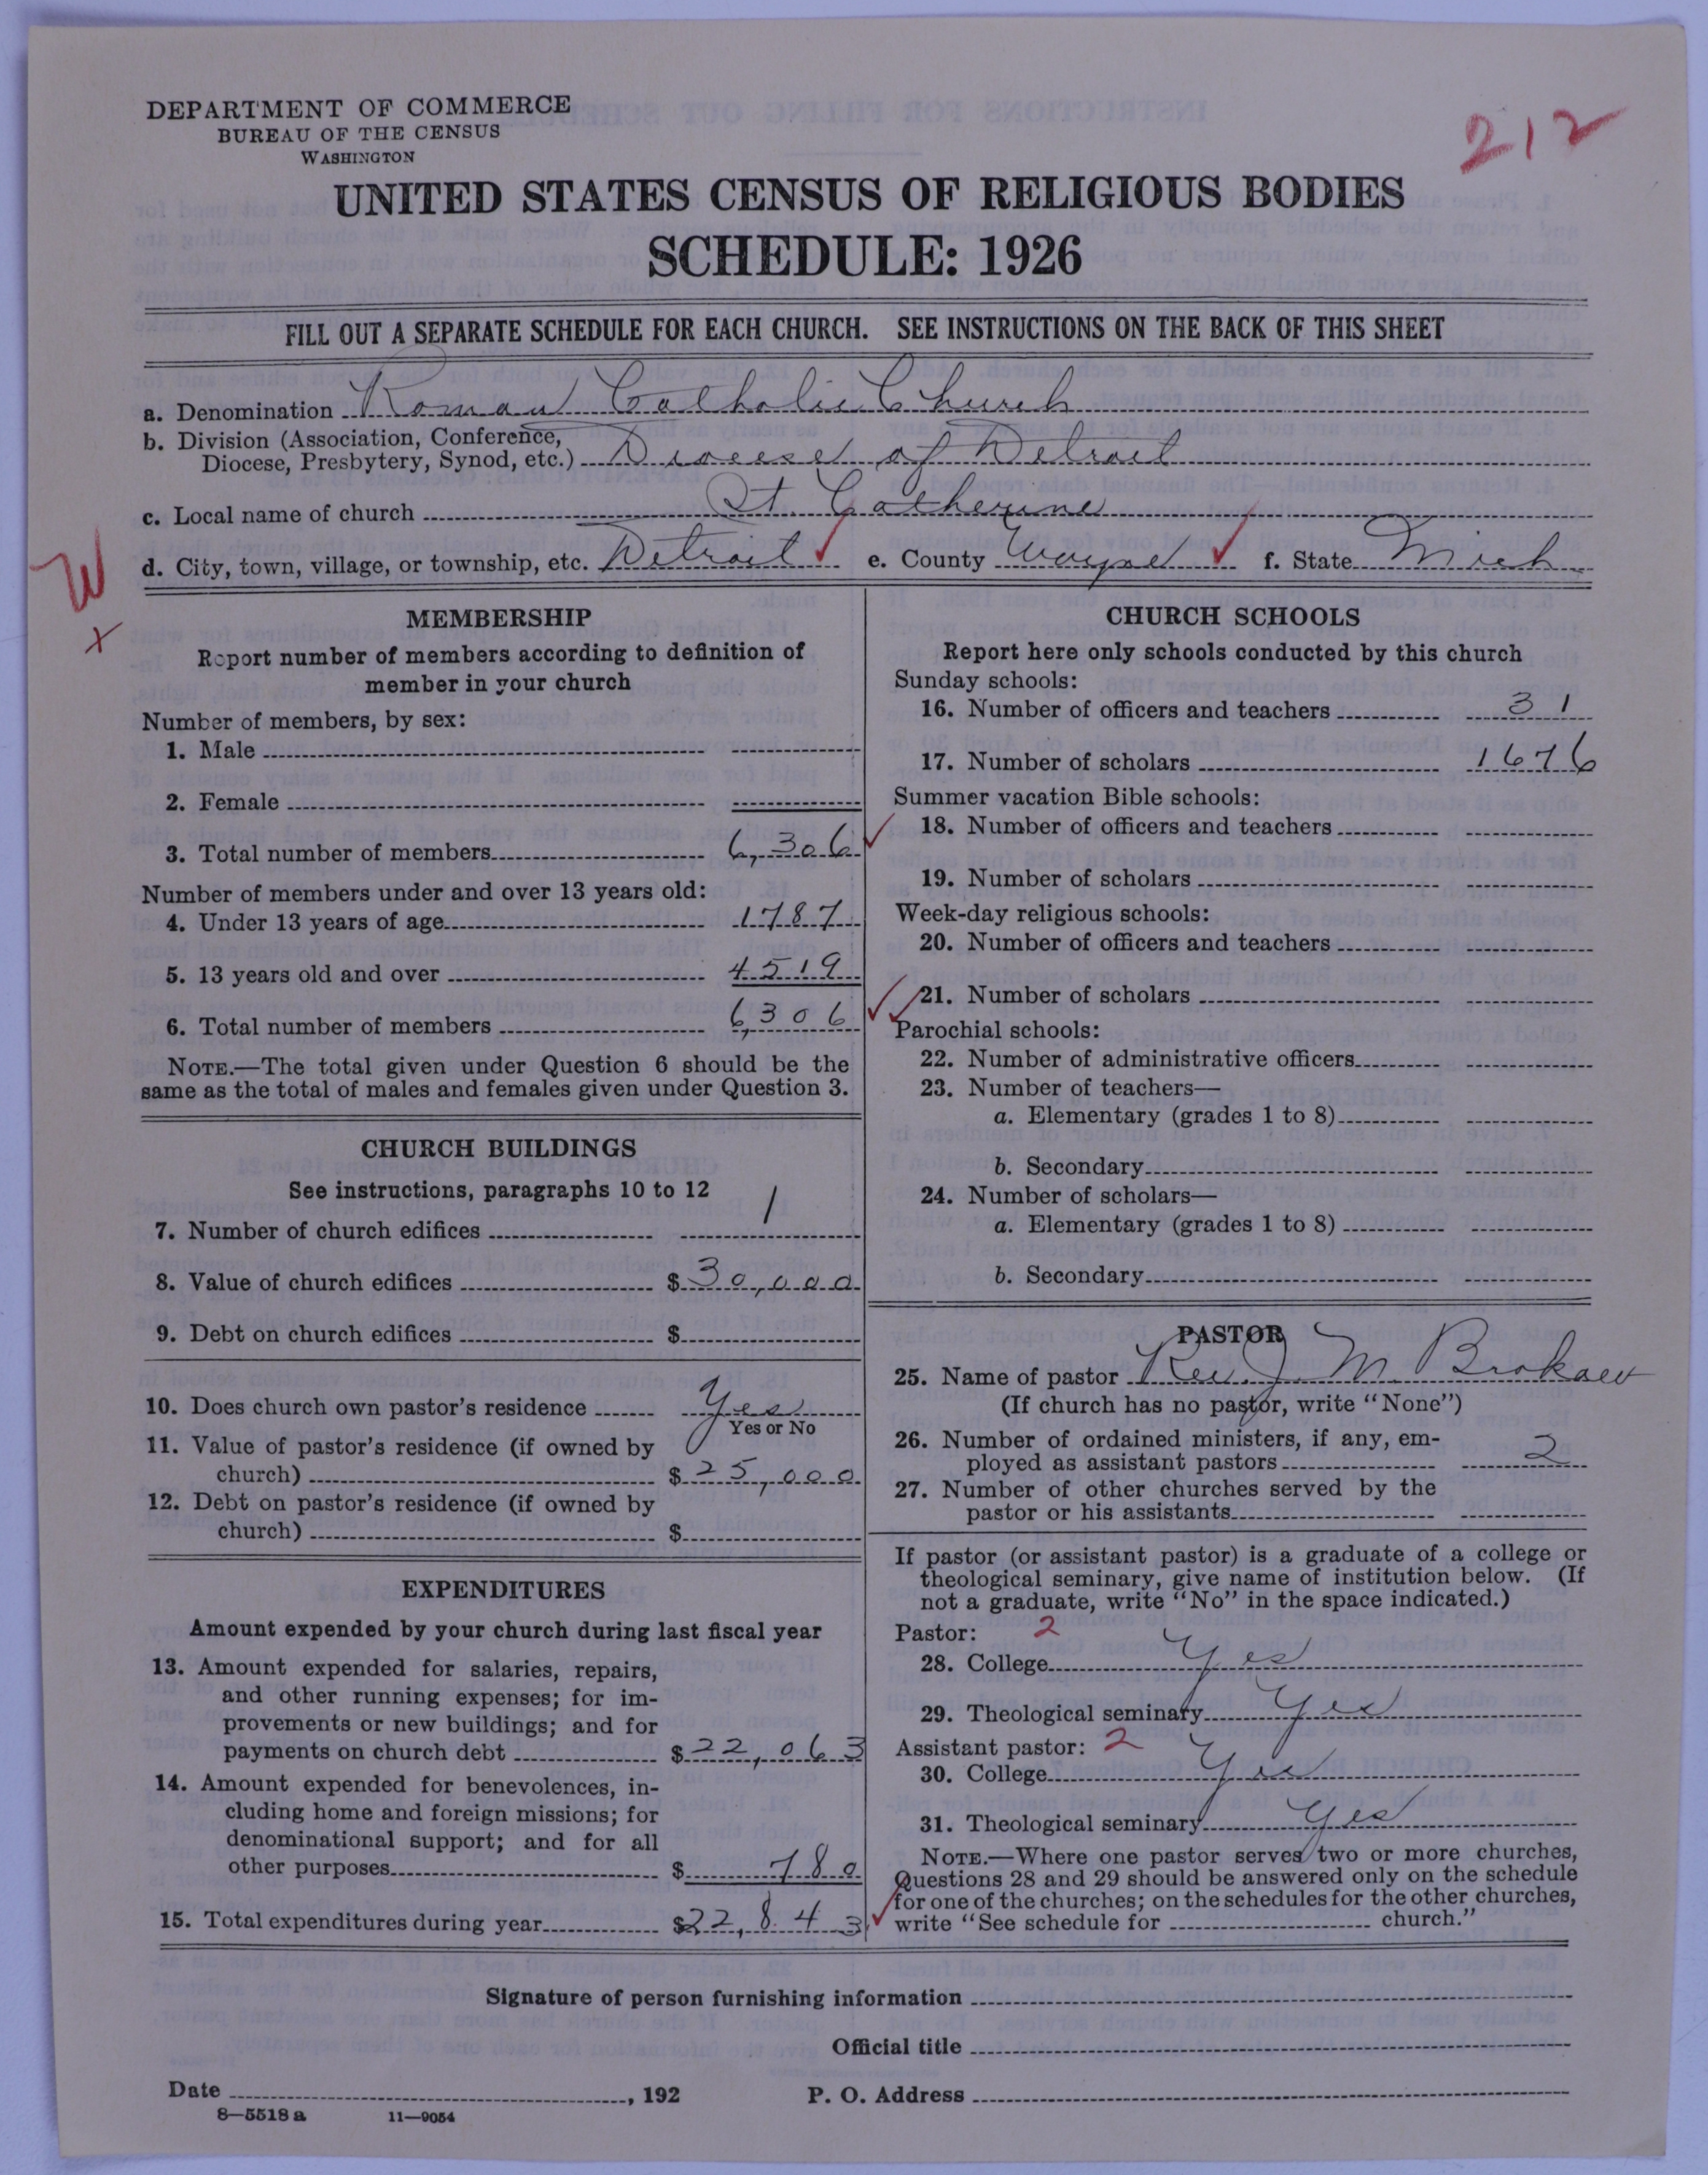 DEPARTMENT OF COMMERCE
BUREAU OF THE CENSUS
WASHINGTON
212
UNITED STATES CENSUS OF RELIGIOUS BODIES
SCHEDULE: 1926
FILL OUT A SEPARATE SCHEDULE FOR EACH CHURCH. SEE INSTRUCTIONS ON THE BACK OF THIS SHEET
a. Denomination Roman Catholic Church
b. Division (Association, Conference,
Diocese, Presbytery, Synod, etc.) Diocese of Detroit
c. Local name of church St Catherine
d. City, town, village, or township, etc. Detroit e. County Wayne f. State Mich.
W
x
MEMBERSHIP
Report number of members according to definition of
member in your church
Number of members, by sex:
1. Male
2. Female
3. Total number of members 6,306
Number of members under and over 13 years old:
4. Under 13 years of age 1787
5. 13 years old and over 4519
6. Total number of members 6,306
NOTE.—The total given under Question 6 should be the
same as the total of males and females given under Question 3.
CHURCH BUILDINGS
See instructions, paragraphs 10 to 12
7. Number of church edifices 1
8. Value of church edifices $ 30,000
9. Debt on church edifices $
10. Does church own pastor's residence Yes
Yes or No
11. Value of pastor's residence (if owned by
church) $ 25,000
12. Debt on pastor's residence (if owned by
church) $
EXPENDITURES
Amount expended by your church during last fiscal year
13. Amount expended for salaries, repairs,
and other running expenses; for im-
provements or new buildings; and for
payments on church debt $ 22,063
14. Amount expended for benevolences, in-
cluding home and foreign missions; for
denominational support; and for all
other purposes $ 780
15. Total expenditures during year $ 22,843
CHURCH SCHOOLS
Report here only schools conducted by this church
Sunday schools:
16. Number of officers and teachers 31
17. Number of scholars 1676
Summer vacation Bible schools:
18. Number of officers and teachers
19. Number of scholars
Week-day religious schools:
20. Number of officers and teachers
21. Number of scholars
Parochial schools:
22. Number of administrative officers
23. Number of teachers—
a. Elementary (grades 1 to 8)
b. Secondary
24. Number of scholars—
a. Elementary (grades 1 to 8)
b. Secondary
PASTOR
25. Name of pastor Rev. J. M. Brokaw
(If church has no pastor, write "None")
26. Number of ordained ministers, if any, em-
ployed as assistant pastors 2
27. Number of other churches served by the
pastor or his assistants
If pastor (or assistant pastor) is a graduate of a college or
theological seminary, give name of institution below. (If
not a graduate, write "No" in the space indicated.)
Pastor: 2
28. College Yes
29. Theological seminary Yes
Assistant pastor: 2
30. College Yes
31. Theological seminary Yes
NOTE.—Where one pastor serves two or more churches,
Questions 28 and 29 should be answered only on the schedule
for one of the churches; on the schedules for the other churches,
write "See schedule for church."
Signature of person furnishing information
Official title
Date , 192 P. O. Address
8—5518 a 11—9054